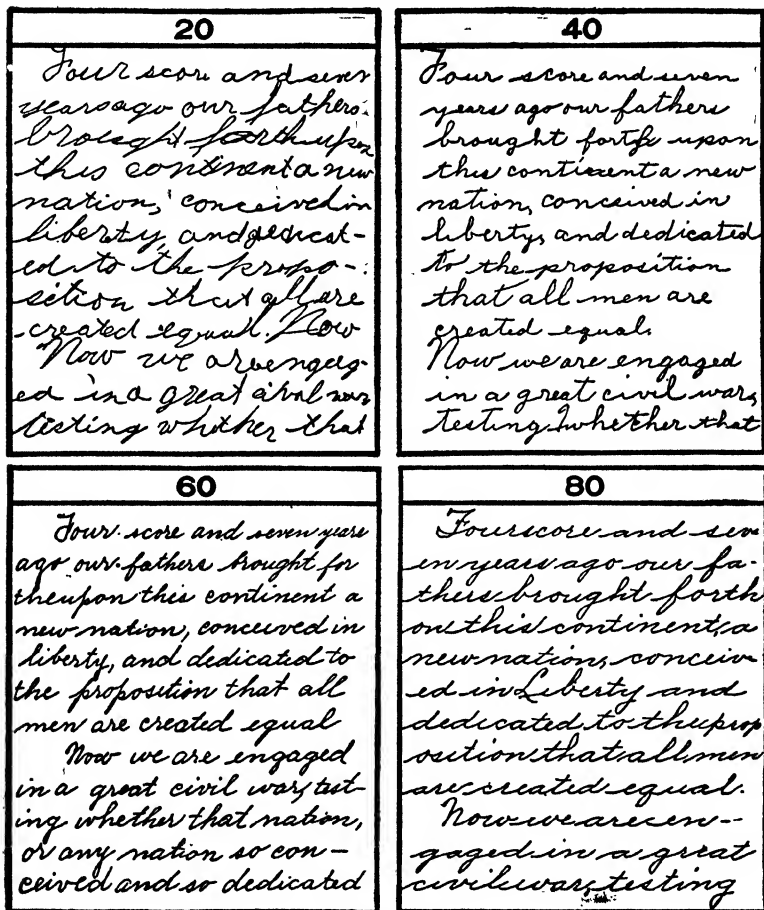 20
Four score and seven
years ago our fathers
brought forth upon
this continent a new
nation, conceived in
liberty, and dedicat-
ed to the propo-
sition that all are
created equal. Now
Now we are engag-
ed in a great civil war
testing whether that
40
Four score and seven
years ago our fathers
brought forth upon
this continent a new
nation, conceived in
liberty, and dedicated
to the proposition
that all men are
created equal.
Now we are engaged
in a great civil war,
testing whether that
60
Four score and seven years
ago our fathers brought for
th upon this continent a
new nation, conceived in
liberty, and dedicated to
the proposition that all
men are created equal
Now we are engaged
in a great civil war, test-
ing whether that nation,
or any nation so con-
ceived and so dedicated
80
Fourscore and sev
en years ago our fa-
thers brought forth
on this continent, a
new nation, conceiv
ed in Liberty and
dedicated to the prop
osition that all men
are created equal.
Now we are en-
gaged in a great
civil war, testing